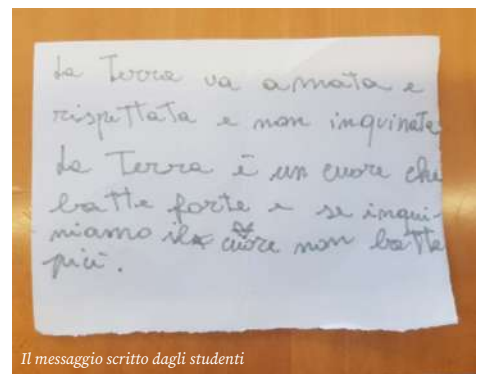 La Terra va amata e
rispettata e non inquinata
La Terra è un cuore che
batte forte e se inqui-
niamo il cuore non batte
più.
Il messaggio scritto dagli studenti